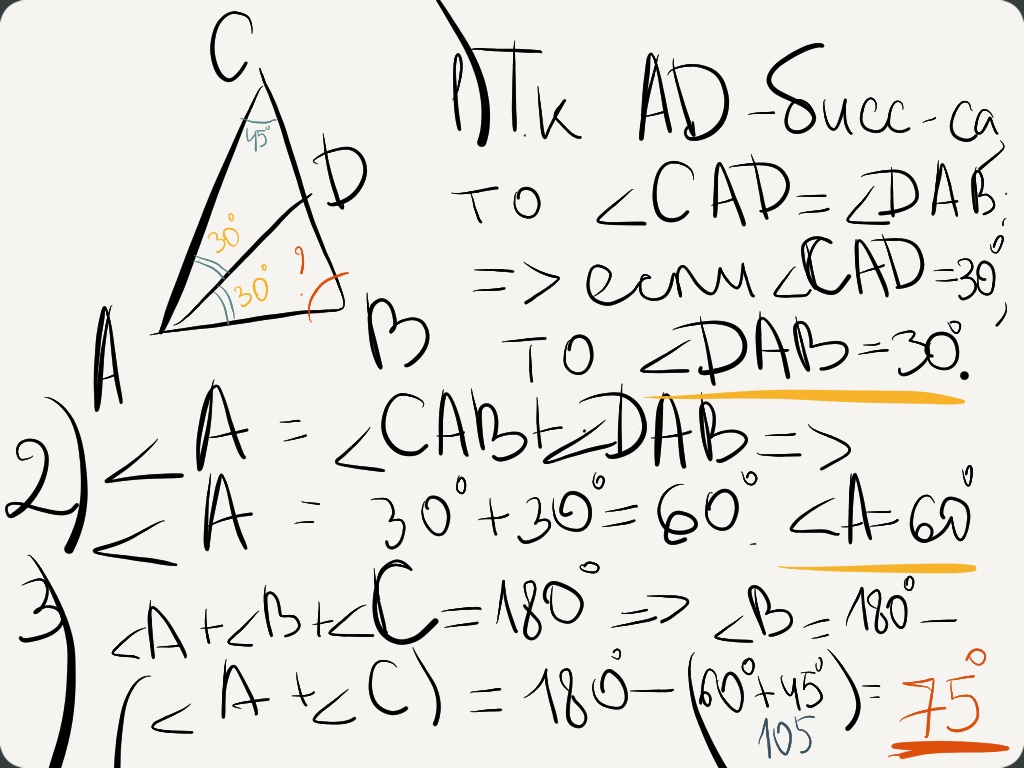 C
45°
D
30°
30°
?
A
B
1) Т.к AD - бисс-са,
то ∠CAD = ∠DAB;
=> если ∠CAD = 30°,
то ∠DAB = 30°.
2) ∠A = ∠CAB + ∠DAB =>
∠A = 30° + 30° = 60°. ∠A = 60°
3) ∠A + ∠B + ∠C = 180° => ∠B = 180° -
(∠A + ∠C) = 180° - (60° + 45°) = 75°
105